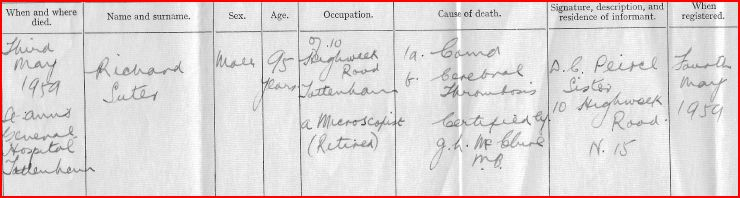 When and where died.
Name and surname.
Sex.
Age.
Occupation.
Cause of death.
Signature, description, and residence of informant.
When registered.
Third
May
1959
St. Ann's
General
Hospital
Tottenham
Richard
Suter
Male
95
years
of 10
Highweek
Road
Tottenham
a Microscopist
(Retired)
1a. Coma
b. Cerebral
Thrombosis
Certified by
G. h. McClure
M.B.
D. C. Peircl
Sister
10 Highweek
Road.
N. 15
Fourth
May
1959